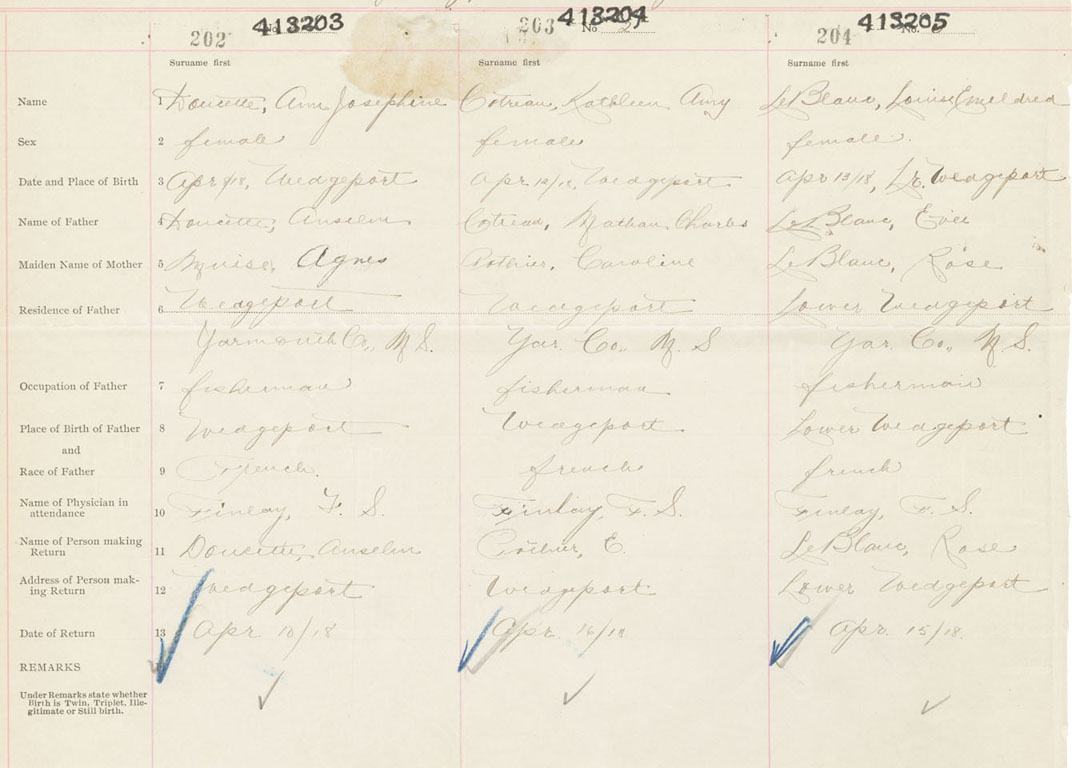 413203 413204 413205
202 No 203 No 204 No.
Surname first Surname first Surname first
Name 1 Doucette, Ann Josephine Cotreau, Kathleen Amy LeBlanc, Louise Emeldred
Sex 2 female female female.
Date and Place of Birth 3 Apr 9/18, Wedgeport Apr 12/18, Wedgeport Apr 13/18, Lr. Wedgeport
Name of Father 4 Doucette, Anselm Cotreau, Nathan Charles LeBlanc, Evee
Maiden Name of Mother 5 Muise, Agnes Pothier, Caroline LeBlanc, Rose
Residence of Father 6 Wedgeport Wedgeport Lower Wedgeport
Yarmouth Co., N S. Yar. Co., N. S Yar. Co., N S.
Occupation of Father 7 fisherman fisherman fisherman
Place of Birth of Father 8 Wedgeport Wedgeport Lower Wedgeport
and
Race of Father 9 French. french french
Name of Physician in
attendance 10 Finlay, F. S. Finlay, F. S. Finlay, F. S.
Name of Person making
Return 11 Doucette, Anselm E. LeBlanc, Rose
Address of Person mak-
ing Return 12 Wedgeport Wedgeport Lower Wedgeport
Date of Return 13 Apr 10/18 Apr. 16/18 Apr. 15/18.
REMARKS
Under Remarks state whether
Birth is Twin, Triplet, Ille-
gitimate or Still birth.